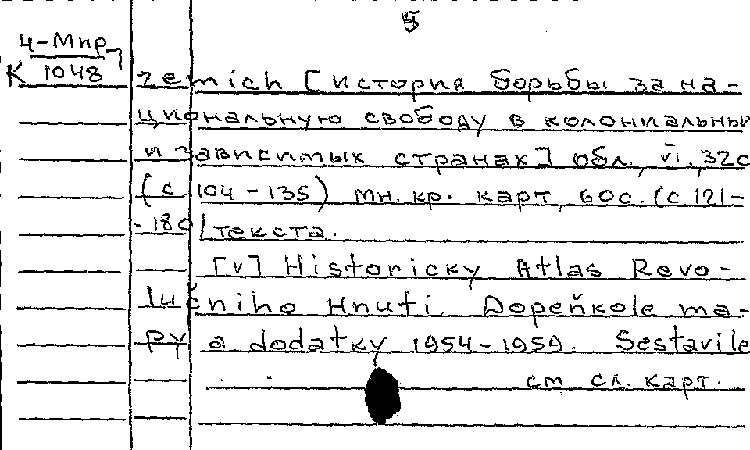 5
4-Мир
К 1048
zemich [история борьбы за на-
циональную свободу в колониальных
и зависимых странах] обл., VI, 32с
(с 104-135) мн. кр. карт, 60с. (с 121-
-180) текста.
[V] Historicky Atlas Revo-
lučniho Hnuti. Dopeňkole ma-
py a dodatky 1954-1959. Sestavile
см сл. карт.